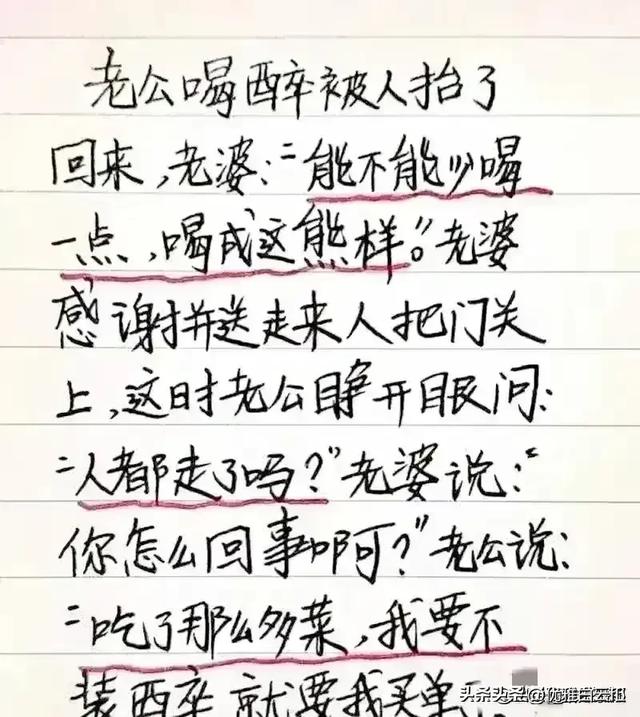 老公喝醉被人抬了
回来,老婆:"能不能少喝
一点,喝成这熊样。"老婆
感谢并送走来人把门关
上,这时老公睁开眼问:
"人都走了吗?"老婆说:"
你怎么回事啊?"老公说:
"吃了那么多菜,我要不
装醉就要我买单了。
头条 @优雅白云扣